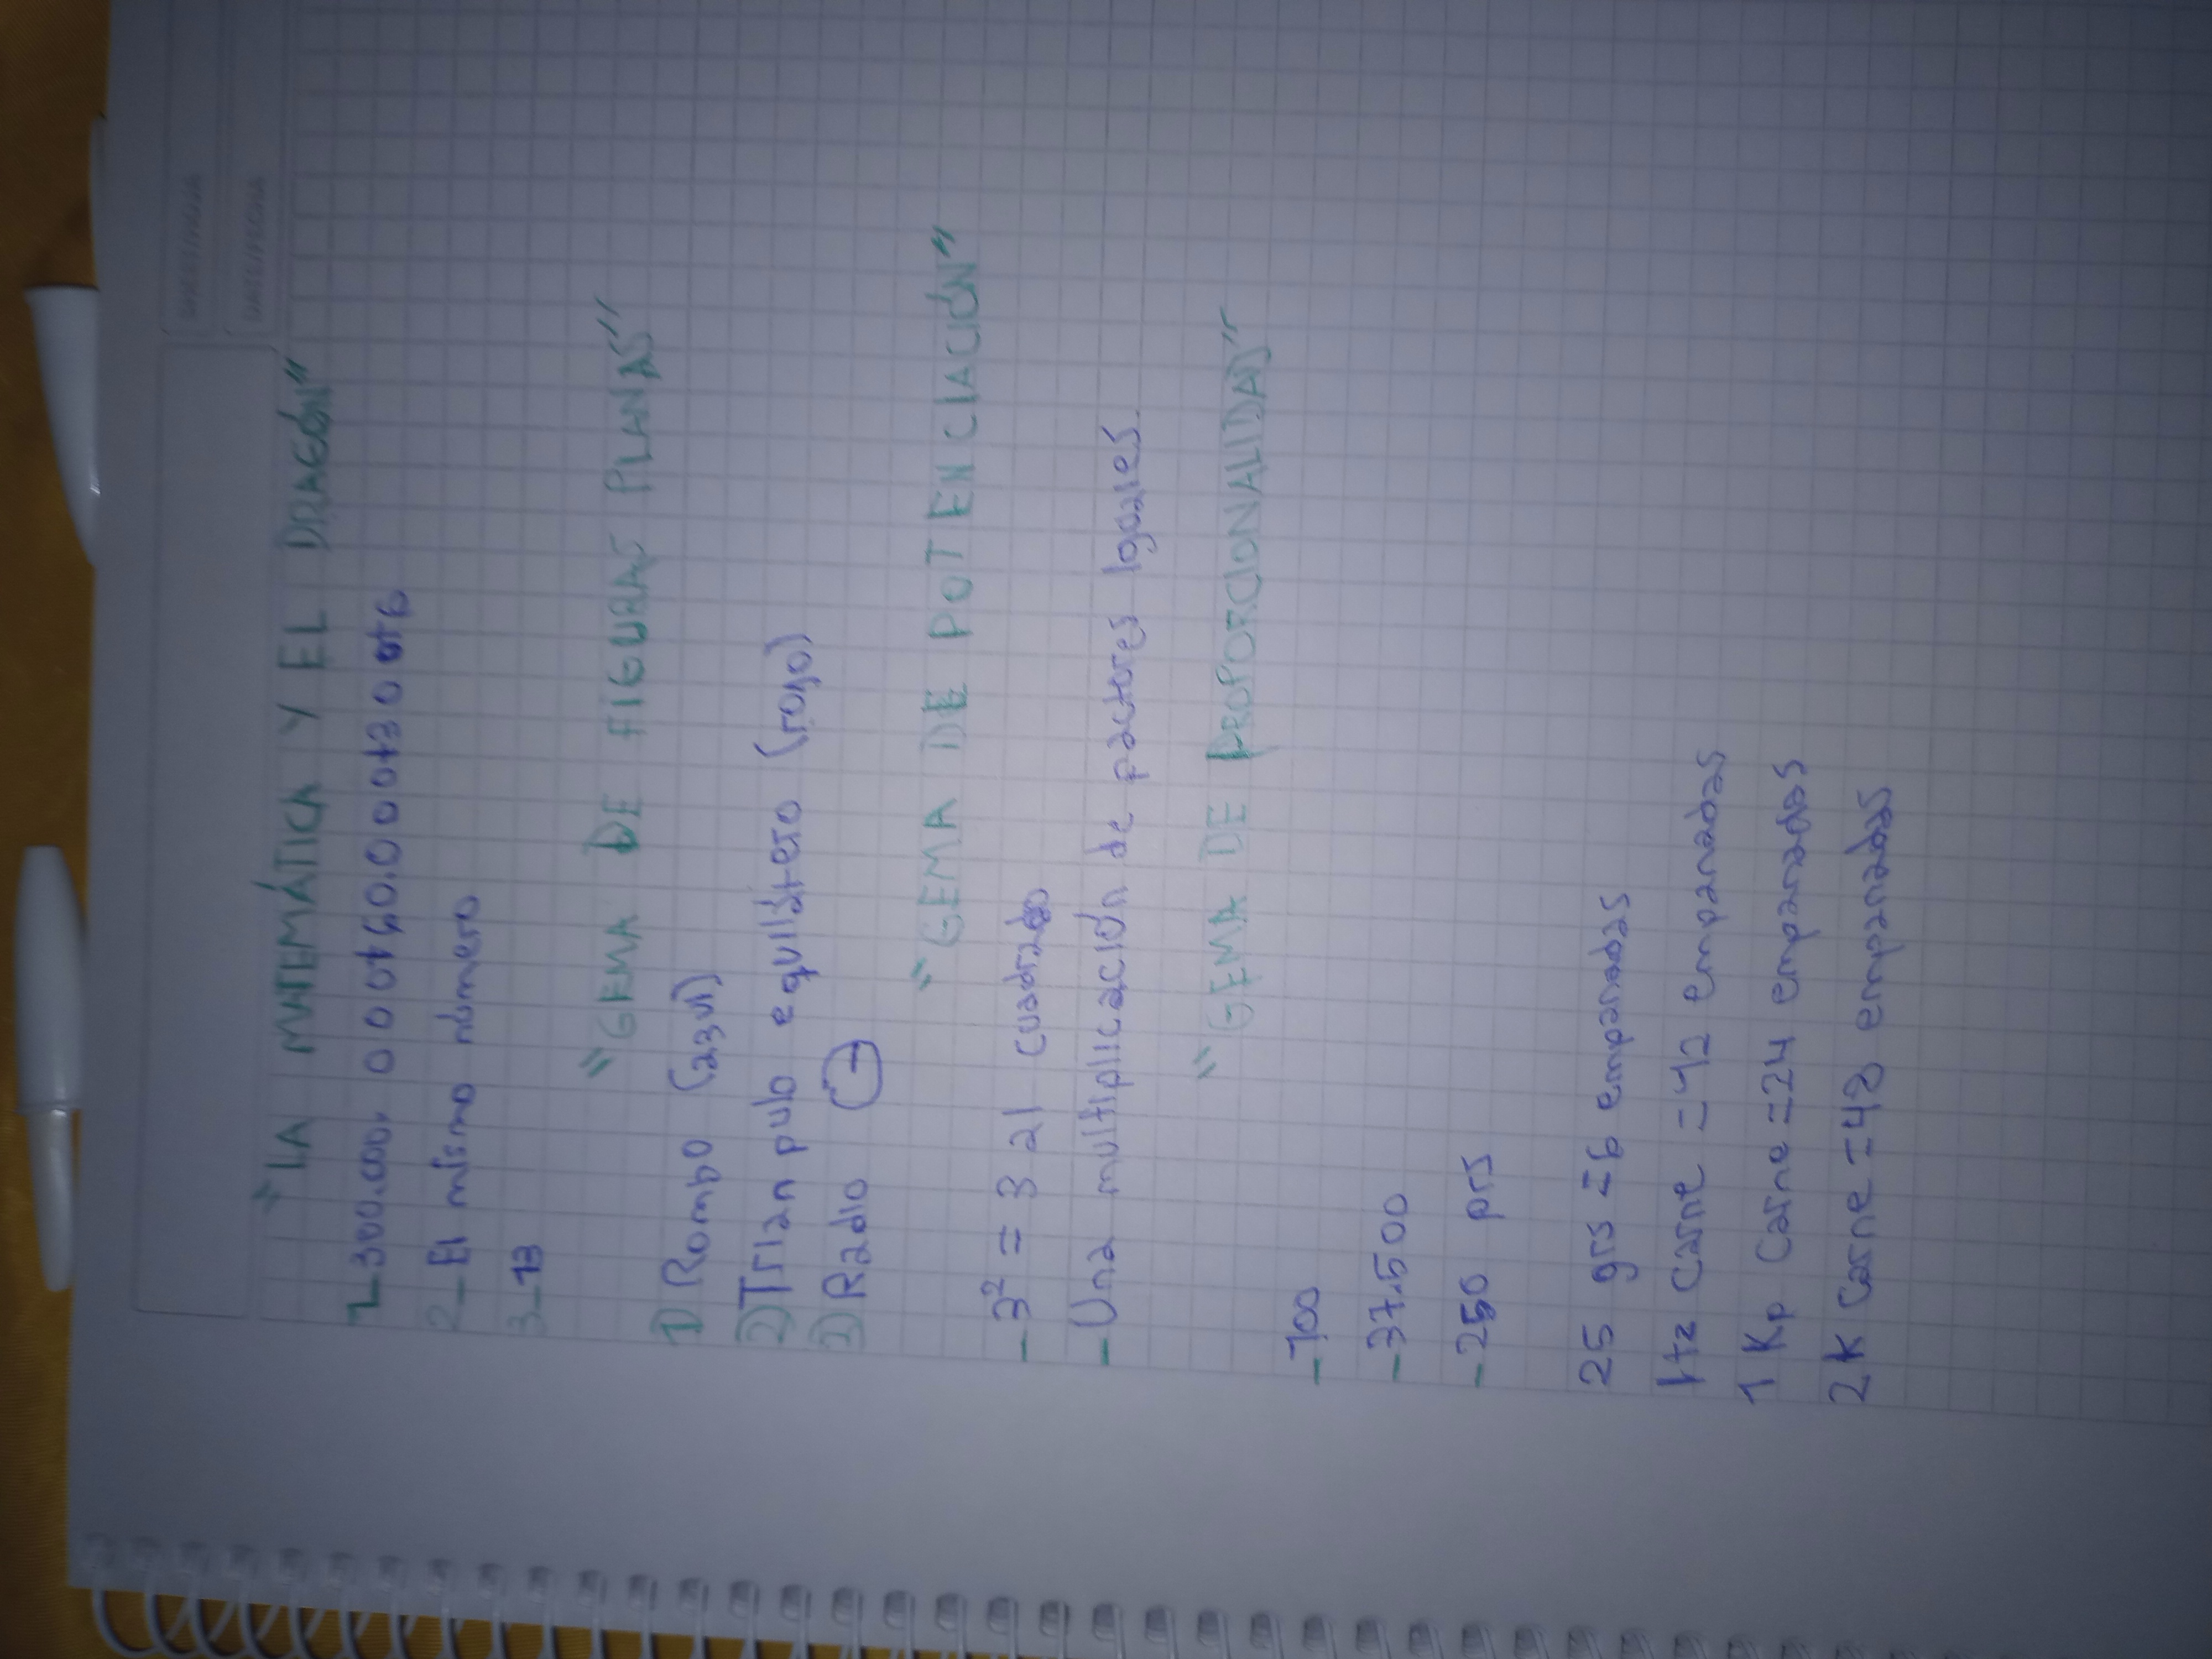 "LA MATEMÁTICA Y EL DRAGÓN"
1_300.000.000+60.000+300+6
2_El mismo número
3_13
"GEMA DE FIGURAS PLANAS"
1) Rombo (azul)
2) Triangulo equilátero (rojo)
2) Radio
"GEMA DE POTENCIACIÓN"
-3² = 3 al cuadrado
-Una multiplicación de factores Iguales.
"GEMA DE PROPORCIONALIDAD"
-100
-37.500
-250 grs
25 grs = 6 empanadas
carne = 12 empanadas
1 Kg carne = 24 empanadas
2 K carne = 48 empanadas